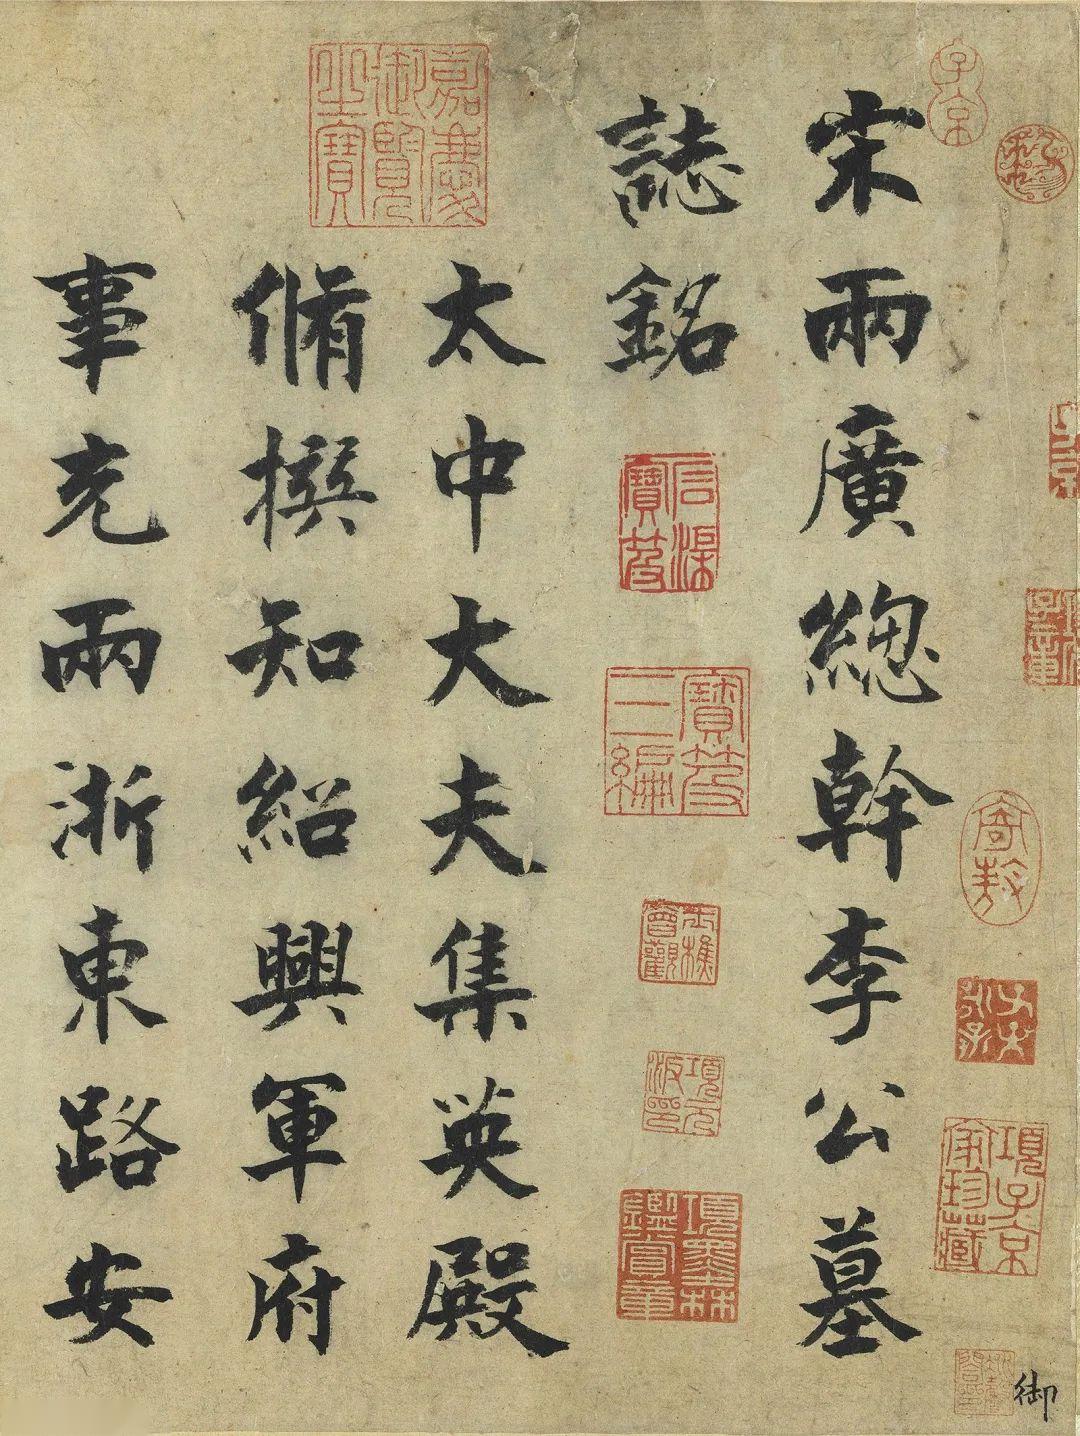 宋兩廣總幹李公墓
誌銘
太中大夫集英殿
脩撰知紹興軍府
事充兩浙東路安
御
子京
嘉慶御覽之寶
石渠寶笈
寶笈三編
項元汴印
項墨林鑑賞章
項子京家珍藏